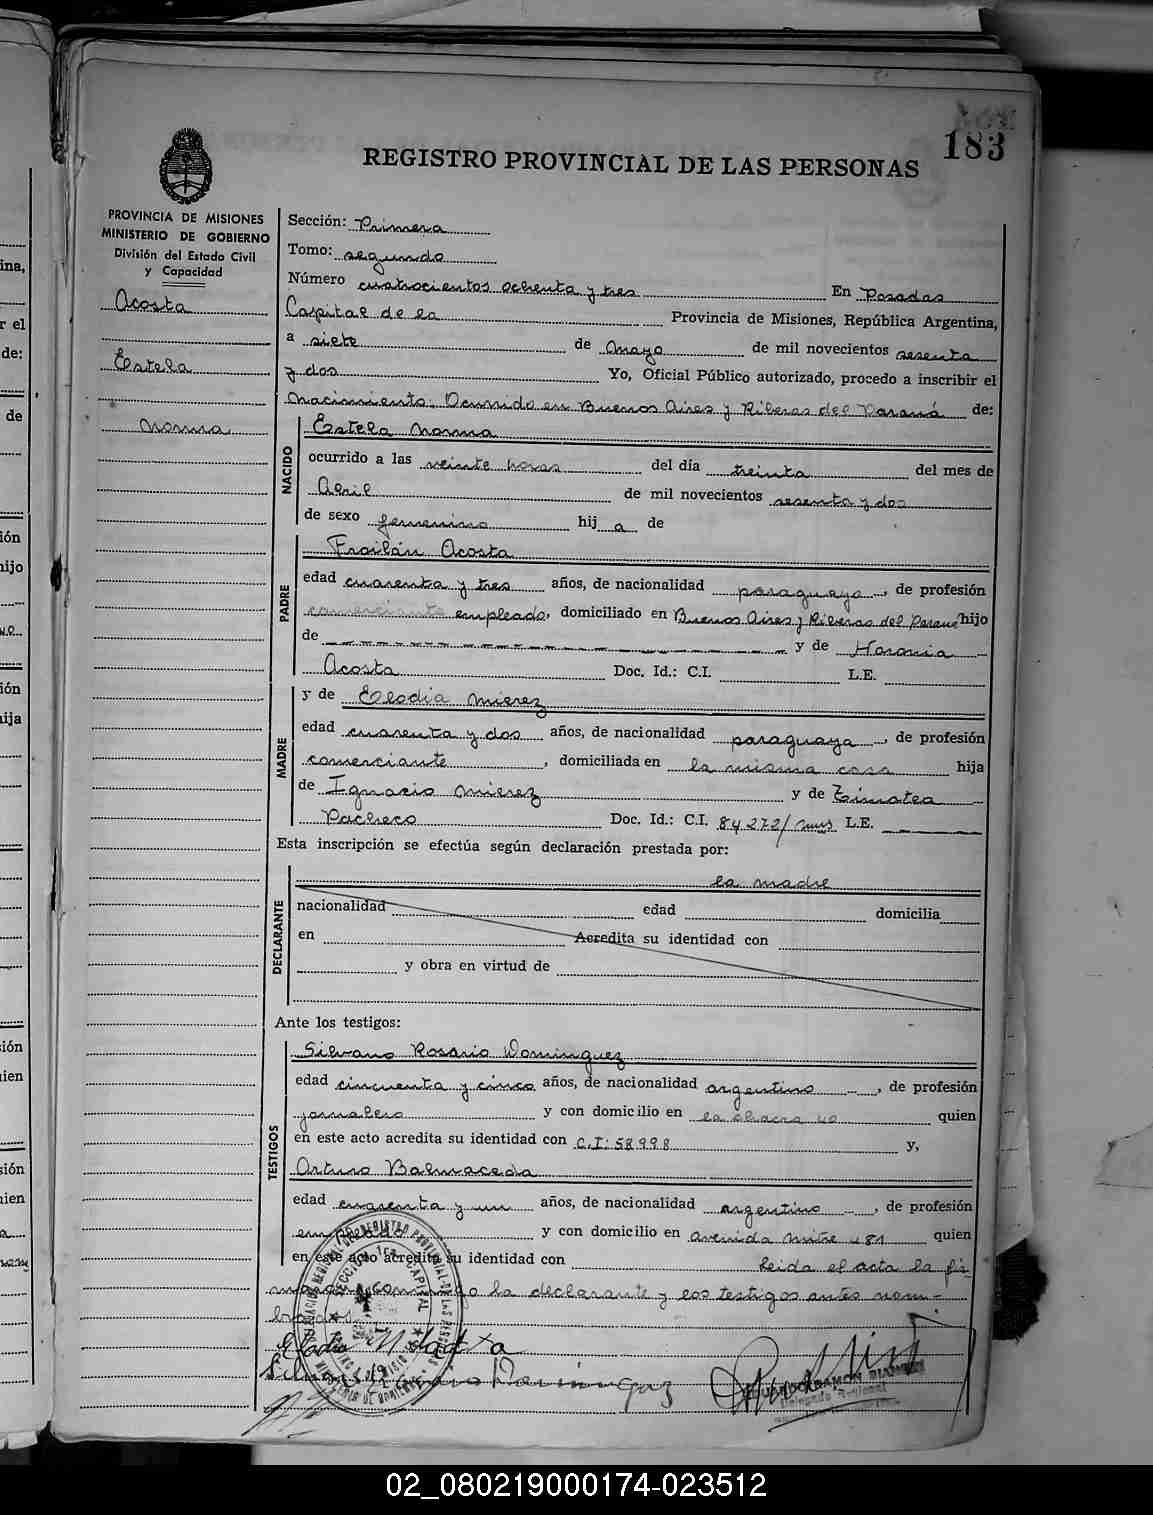 183
REGISTRO PROVINCIAL DE LAS PERSONAS
PROVINCIA DE MISIONES
MINISTERIO DE GOBIERNO
División del Estado Civil
y Capacidad
Acosta
Estela
Norma
Sección: Primera
Tomo: segundo
Número cuatrocientos ochenta y tres En Posadas
Capital de la Provincia de Misiones, República Argentina,
a siete de Mayo de mil novecientos sesenta
y dos Yo, Oficial Público autorizado, procedo a inscribir el
Nacimiento. Ocurrido en Buenos Aires y Riberas del Paraná de:
NACIDO
Estela Norma
ocurrido a las veinte horas del día treinta del mes de
Abril de mil novecientos sesenta y dos
de sexo femenino hij a de
PADRE
Froilán Acosta
edad cuarenta y tres años, de nacionalidad paraguayo, de profesión
comerciante empleado, domiciliado en Buenos Aires y Riberas del Paraná hijo
de y de Honoria
Acosta Doc. Id.: C.I. L.E.
MADRE
y de Elodia Mierez
edad cuarenta y dos años, de nacionalidad paraguaya, de profesión
comerciante, domiciliada en la misma casa hija
de Ignacio Mierez y de Timotea
Pacheco Doc. Id.: C.I. 84272/ L.E.
Esta inscripción se efectúa según declaración prestada por:
DECLARANTE
la madre
nacionalidad edad domicilia
en Acredita su identidad con
y obra en virtud de
Ante los testigos:
TESTIGOS
Silvano Rosario Dominguez
edad cincuenta y cinco años, de nacionalidad argentino, de profesión
jornalero y con domicilio en la chacra 40 quien
en este acto acredita su identidad con C.I: 58998 y,
Arturo Balmaceda
edad cuarenta y un años, de nacionalidad argentino, de profesión
empleado y con domicilio en avenida Mitre 481 quien
en este acto acredita su identidad con Leida el acta la fir
man conmigo la declarante y los testigos antes nom-
brados
02_080219000174-023512